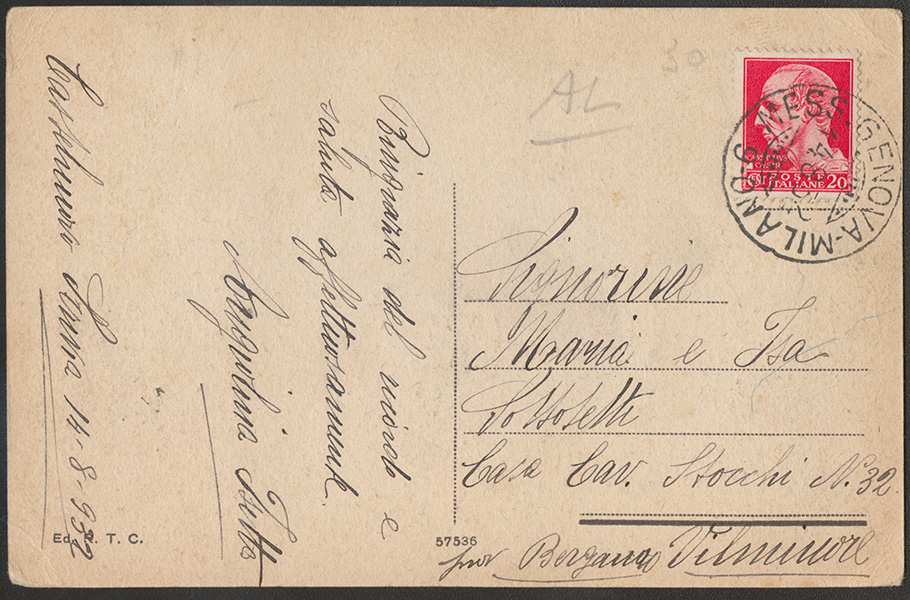 Castelnuovo Scrivia 14-8-932
Ringrazia del ricordo e
saluta affettuosamente
Angiolina
Ed. P. T. C.
57536
AL
30
POSTE
ITALIANE 20
MESS. GENOVA-MILANO-6
Signorine
Maria e Isa
Casa Cav. Stocchi N. 32
per Bergamo Vilminore